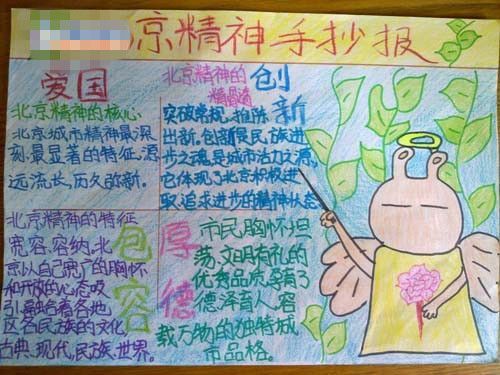 京精神手抄报
爱国
北京精神的核心
北京城市精神最深
刻、最显著的特征,源
远流长,历久弥新。
北京精神的
精髓
创新
突破常规,推陈
出新。创新是民族进
步之魂,是城市活力之源,
它体现了北京积极进
取追求进步的精神状态
包容
北京精神的特征
宽容、容纳。北
京以自己广的胸怀
和开放的心态吸
引、融合着各地
区各民族的文化,
古典、现代,民族、世界。
厚德
市民胸怀坦
荡文明有礼的
优秀品质,孕育了
德泽育人、容
载万物的独特城
市品格。